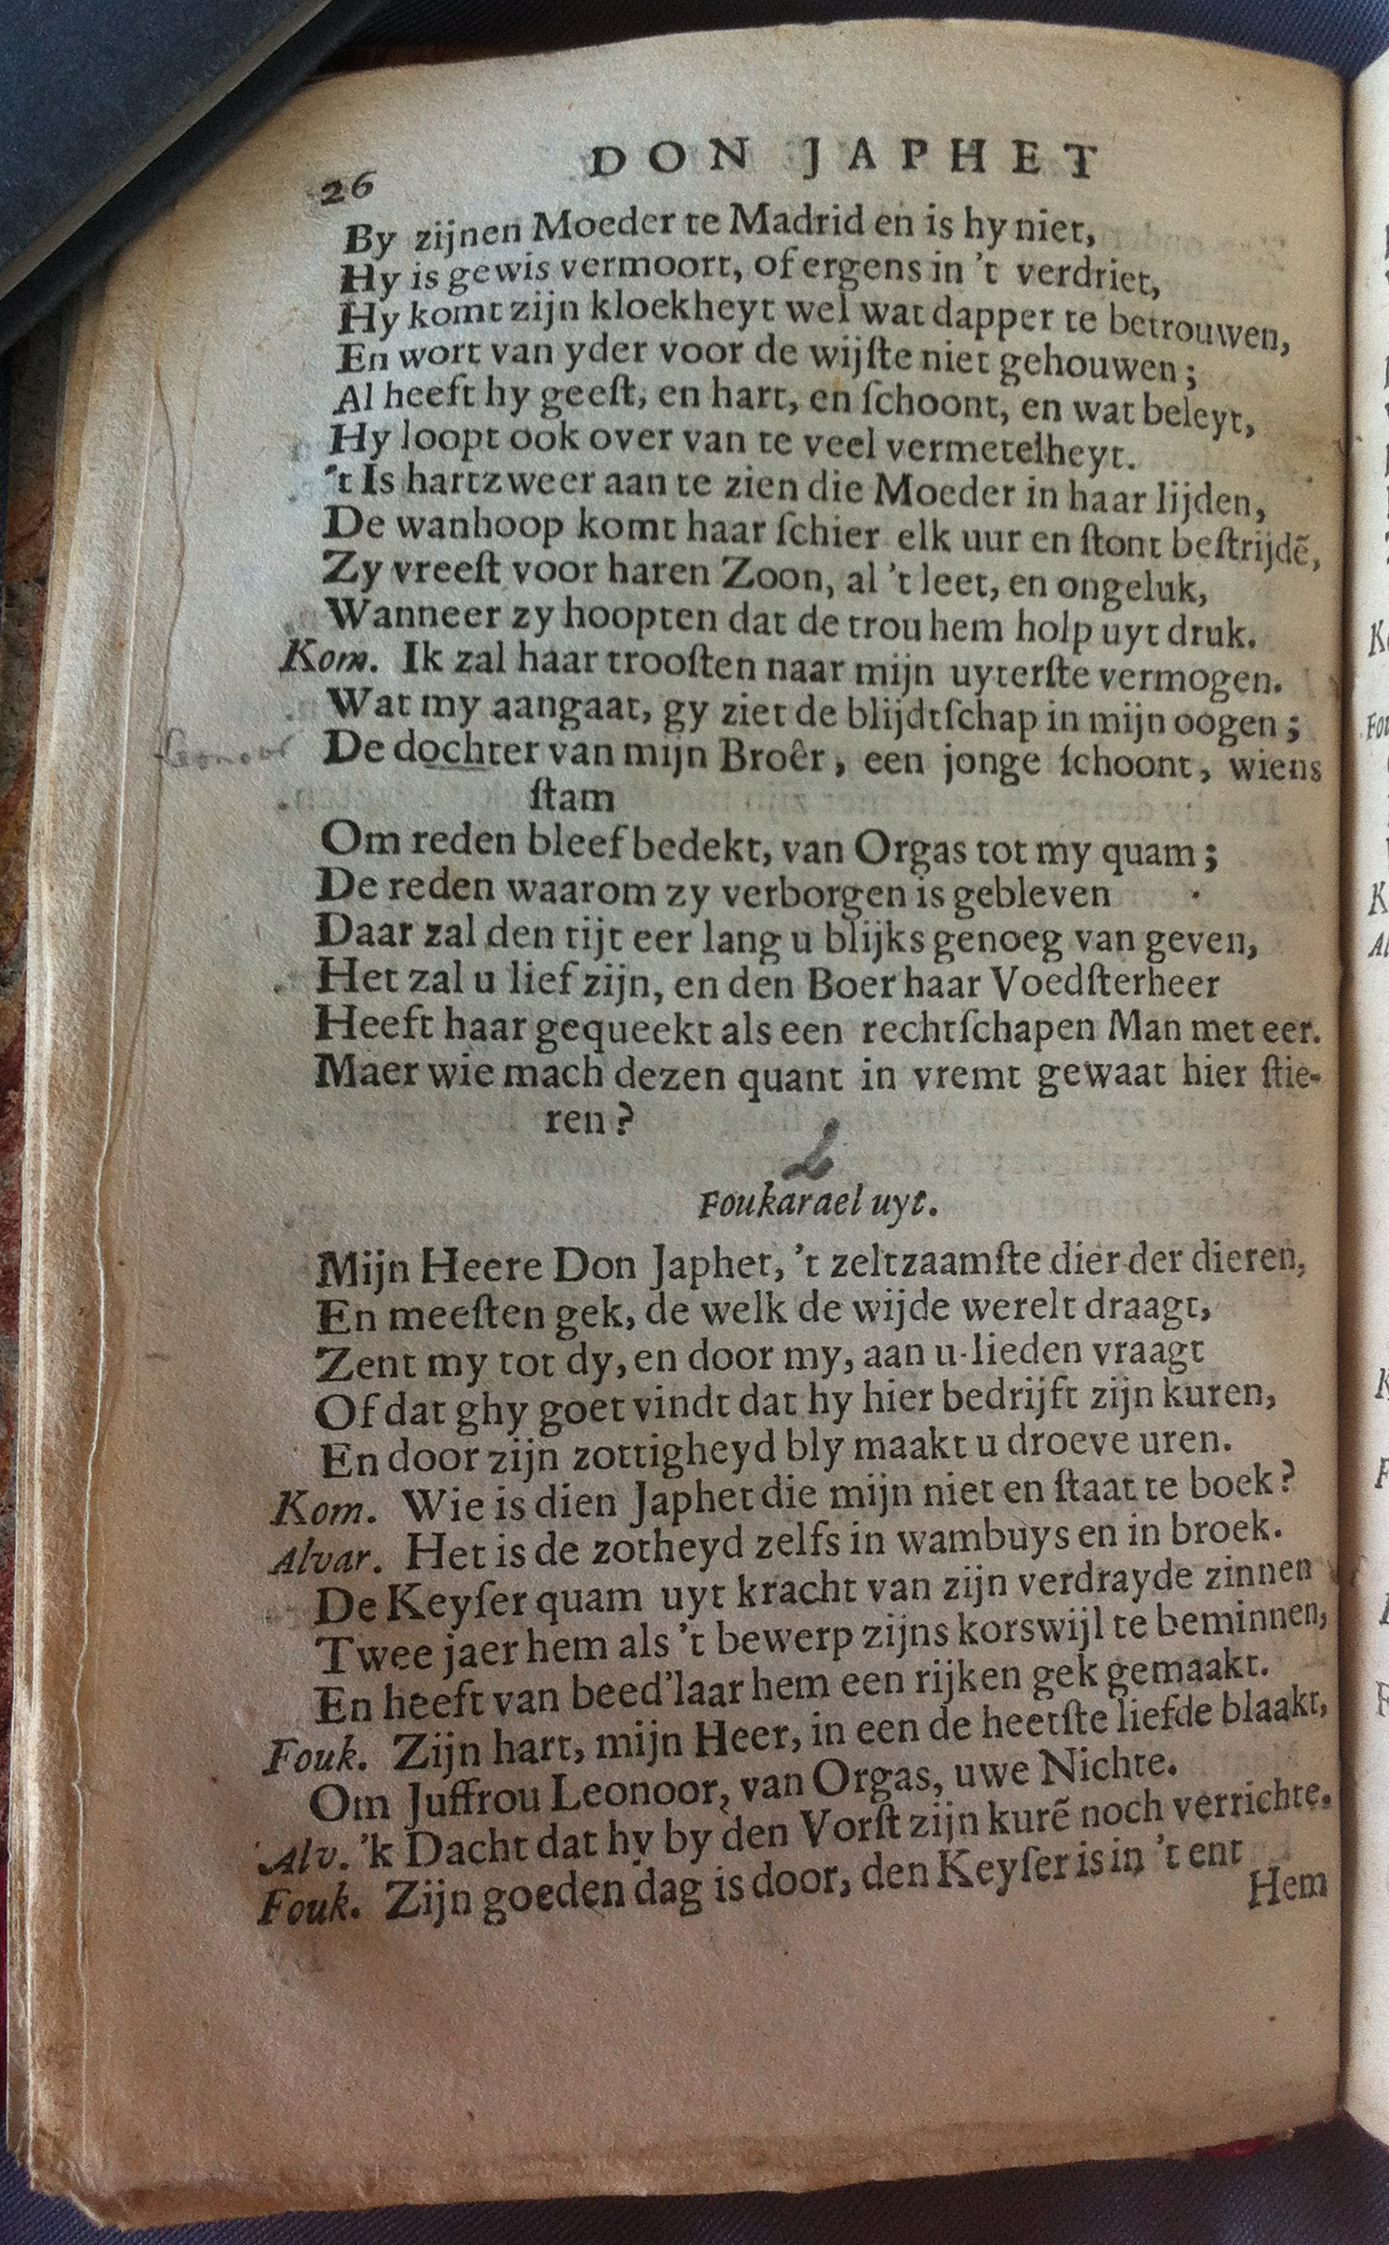 26 DON JAPHET
By zijnen Moeder te Madrid en is hy niet,
Hy is gewis vermoort, of ergens in 't verdriet,
Hy komt zijn kloekheyt wel wat dapper te betrouwen,
En wort van yder voor de wijſte niet gehouwen;
Al heeft hy geeſt, en hart, en ſchoont, en wat beleyt,
Hy loopt ook over van te veel vermetelheyt.
't Is hartzweer aan te zien die Moeder in haar lijden,
De wanhoop komt haar ſchier elk uur en ſtont beſtrijdẽ,
Zy vreeſt voor haren Zoon, al 't leet, en ongeluk,
Wanneer zy hoopten dat de trou hem holp uyt druk.
Kom. Ik zal haar trooſten naar mijn uyterſte vermogen.
Wat my aangaat, gy ziet de blijdtſchap in mijn oogen;
Leonoor De dochter van mijn Broêr, een jonge ſchoont, wiens
ſtam
Om reden bleef bedekt, van Orgas tot my quam;
De reden waarom zy verborgen is gebleven
Daar zal den tijt eer lang u blijks genoeg van geven,
Het zal u lief zijn, en den Boer haar Voedſterheer
Heeft haar gequeekt als een rechtſchapen Man met eer.
Maer wie mach dezen quant in vremt gewaat hier ſtie-
ren?
2
Foukarael uyt.
Mijn Heere Don Japhet, 't zeltzaamſte dier der dieren,
En meeſten gek, de welk de wijde werelt draagt,
Zent my tot dy, en door my, aan u-lieden vraagt
Of dat ghy goet vindt dat hy hier bedrijft zijn kuren,
En door zijn zottigheyd bly maakt u droeve uren.
Kom. Wie is dien Japhet die mijn niet en ſtaat te boek?
Alvar. Het is de zotheyd zelfs in wambuys en in broek.
De Keyſer quam uyt kracht van zijn verdrayde zinnen
Twee jaer hem als 't bewerp zijns korswijl te beminnen,
En heeft van beed'laar hem een rijken gek gemaakt.
Fouk. Zijn hart, mijn Heer, in een de heetſte liefde blaakt,
Om Juffrou Leonoor, van Orgas, uwe Nichte.
Alv. 'k Dacht dat hy by den Vorſt zijn kurẽ noch verrichte.
Fouk. Zijn goeden dag is door, den Keyſer is in 't ent
Hem